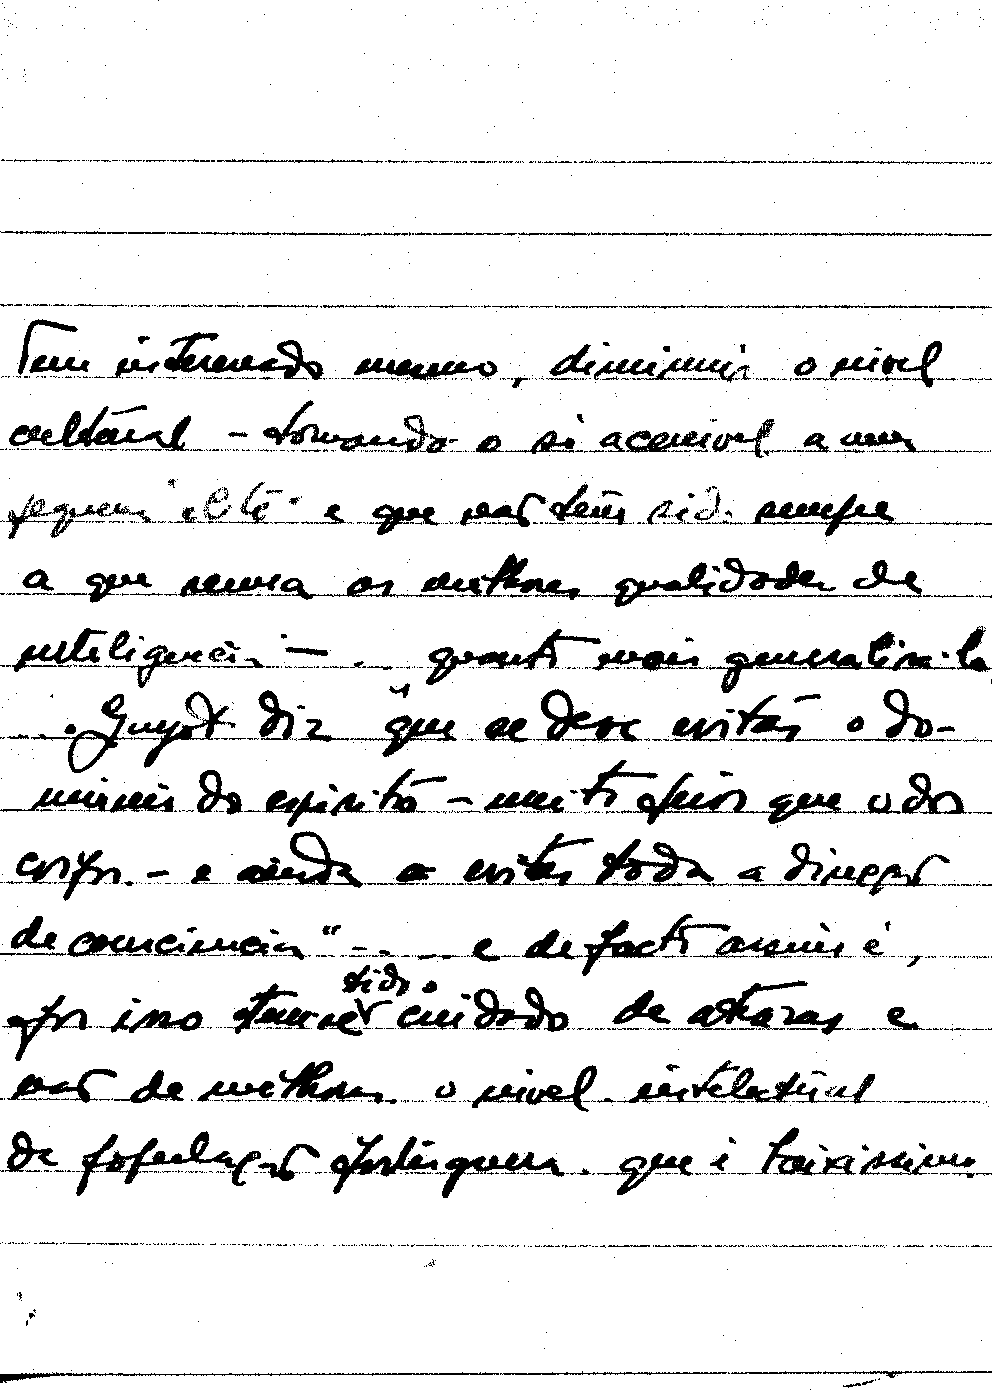 Tem interessado mesmo, diminuir o nivel
cultural – tornando o só acessivel a uma
pequena "elite" e que não tem sido sempre
a que reuna as melhores qualidades de
inteligencia – ... quanto mais generalisa-la
.... Guyot diz "que se deve evitar o do-
minio do espirito – muito peior que o dos
corpos – e ainda a evitar toda a direcção
de consciencia" .... e de facto assim é,
por isso tem-se tido o cuidado de atrazar e
não de melhorar o nivel intelectual
da população portuguesa que é baixissimo